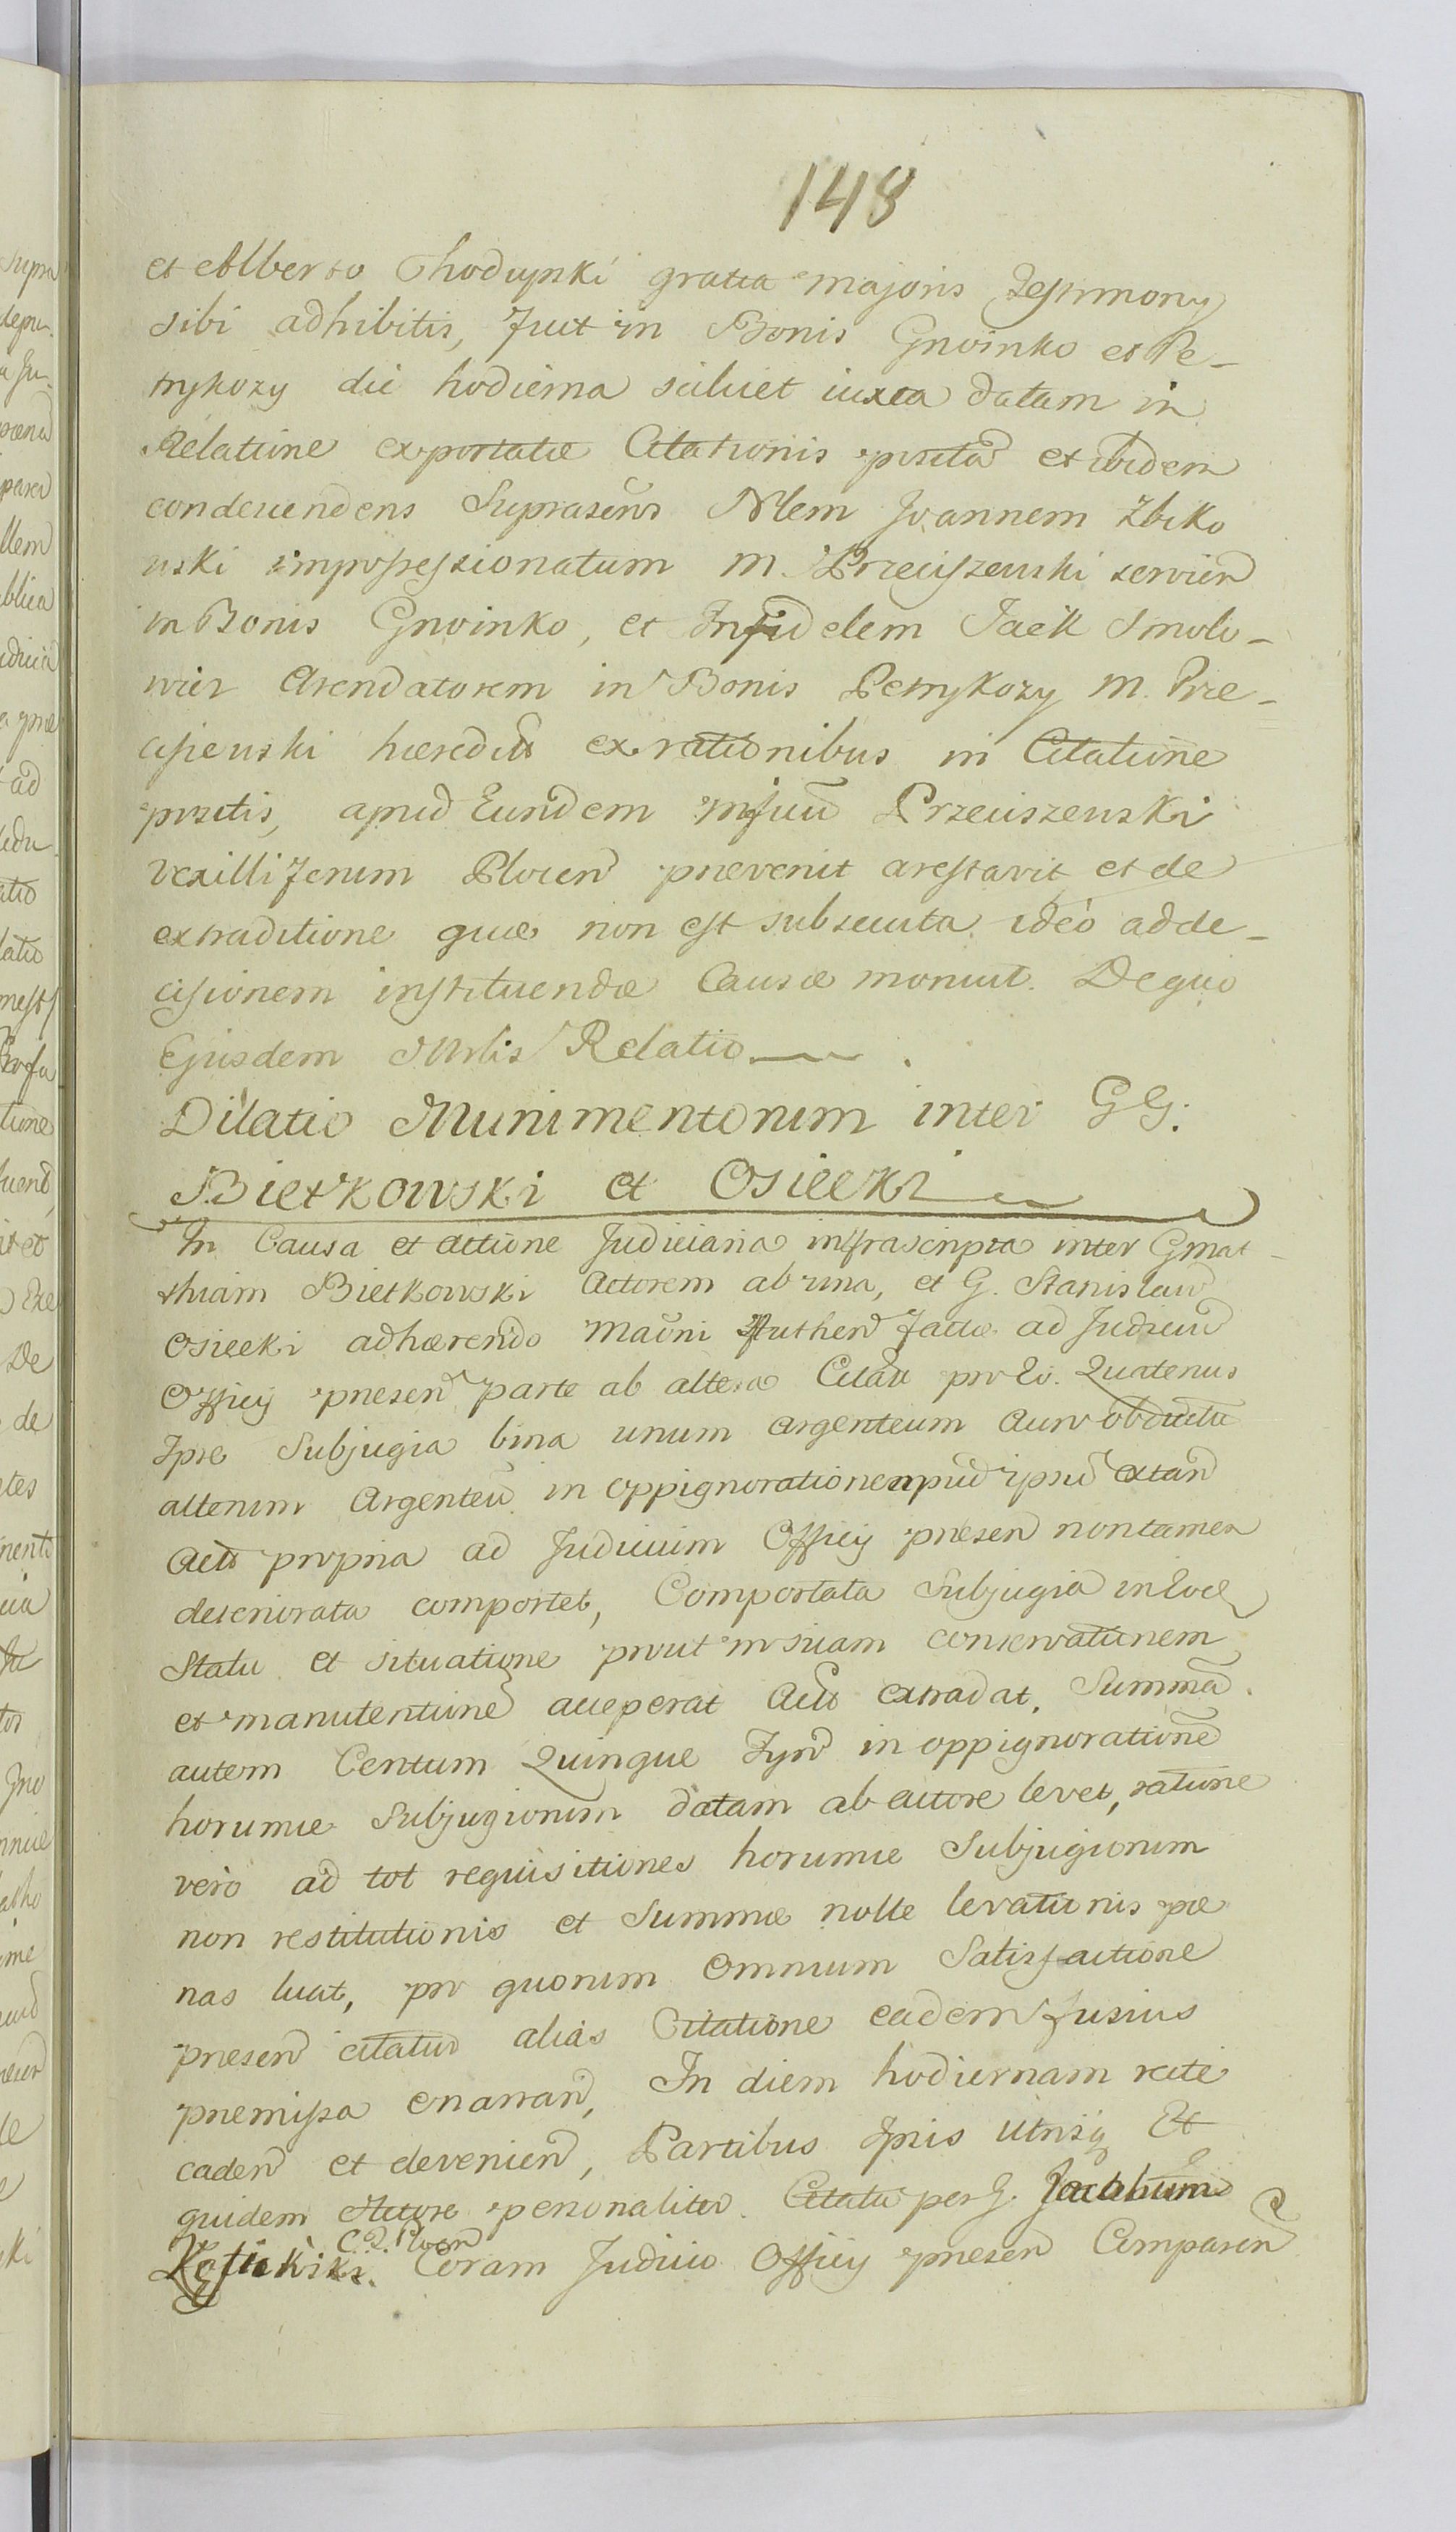 148
et Alberto Chodupski gratia majoris Testimony
sibi adhibitis, fuit in Bonis Gnoinko et Pe-
trykozy die hodierna scilicet iuxta datam in
Relatione exportatæ Citationis posita et ibidem
condescendens Suprascrus Nlem Joannem Zbiko
wski impossessionatum M. Przeciszewski servien
in Bonis Gnoinko, et Infidelem Jaek Smolo-
wicz Arendatorem in Bonis Petrykozy M. Prze-
ciszewski hæreditis ex rationibus in Citatione
positis, apud Eundem Przeciszewski
vexilliferum Plocen prevenit arestavit et de
extraditione quæ non est subsecuta ideo ad de-
cisionem instituendæ Causæ monuit. De quo
Ejusdem Mrlis Relatio
Dilatio Munimentorum inter GG:
Bietkowski et Osiecki
In Causa et Actione Judiciaria infrascripta inter G Mat-
thiam Bietkowski Actorem ab una, et G. Stanislaum
Osiecki adhærendo Mauni Authen factæ ad Judicium
Officy presen parte ab altera Citatu pro Eo. Quatenus
Ipse Subjugia bina unum argenteum Auro obductu
alterum Argenteu in oppignoratione apud ipsu extan
Acts propria ad Judicium Officy presen non tamen
deteriorata comportet, Comportata Subjugia in Eod
Statu et situatione prout in suam conservationem
et manutentione acceperat Acts extradat, Summa
autem Centum Quinque Tyn in oppignoratione
horumce Subjugiorum datam ab Actore levet, ratione
vero ad tot requisitiones horumce Subjugiorum
non restitutionis et Summæ nolle levationis pœ
nas luat, pro quorum omnium Satisfactione
presen citatur alias Citatione eadem fusius
premissa enarran, In diem hodiernam rite
caden et devenien, Partibus Ipsis utrisq Et
quidem Actore personaliter Citatu per G.
C. Q. Plocen
Coram Judicio Officy presen Comparen